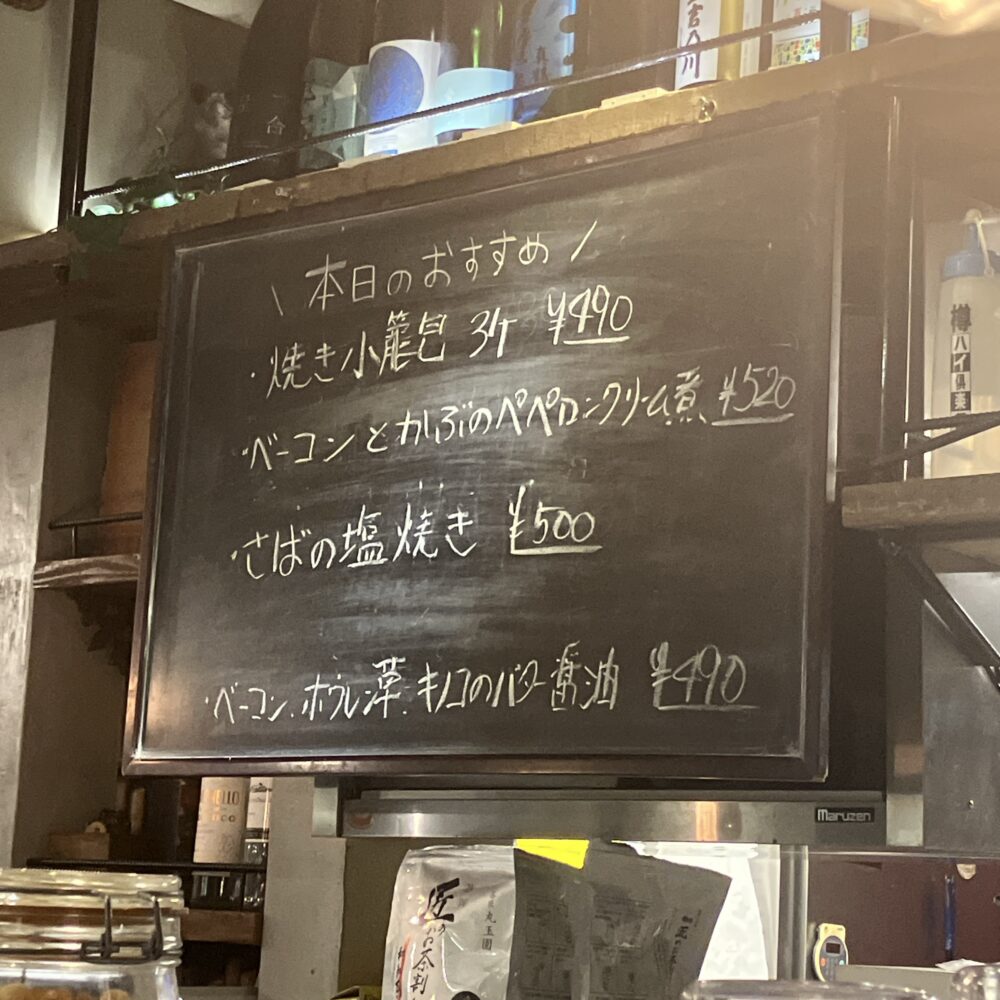 吉八川
\ 本日のおすすめ /
・焼き小籠包 3ケ ¥490
・ベーコンとかぶのペペロンクリーム煮 ¥520
・さばの塩焼き ¥500
・ベーコン、ホウレン草、キノコのバター醤油 ¥490
樽ハイ倶楽
Maruzen
匠の
お茶割
丸玉園